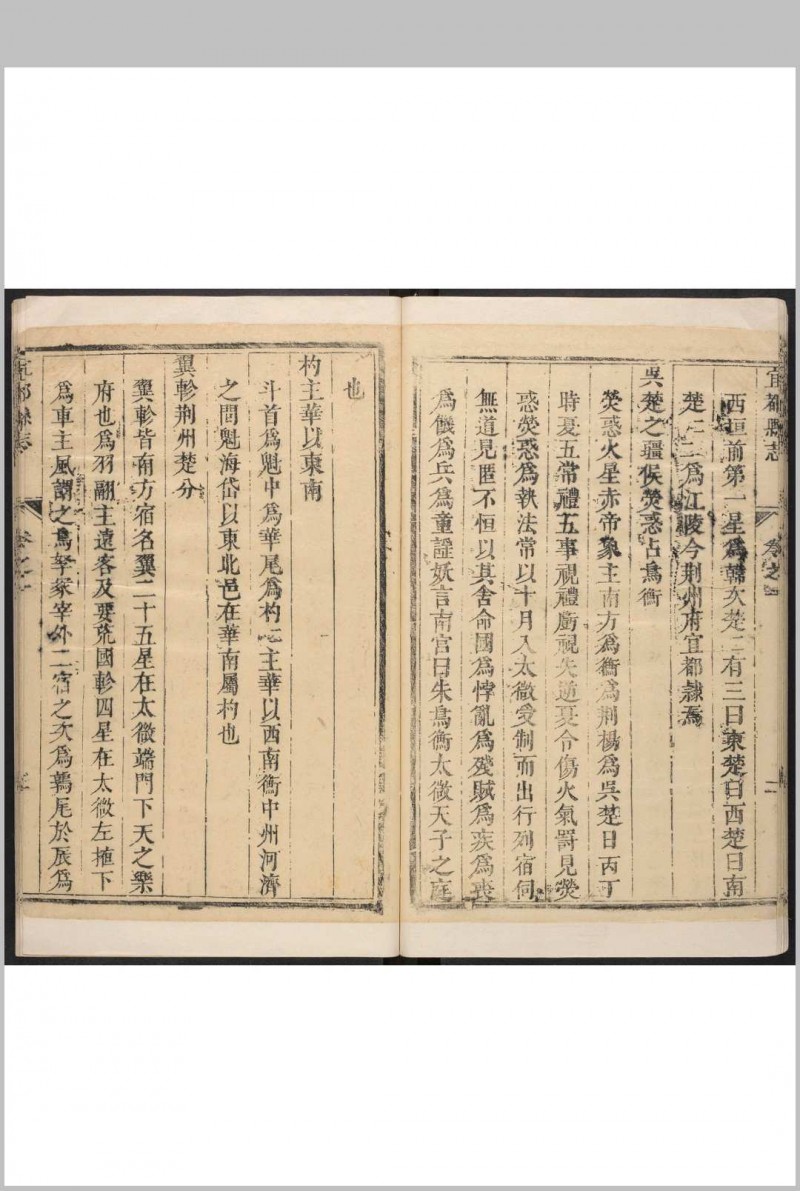 宜都縣志
卷之一
一
西垣前第一星為韓次楚楚有三曰東楚曰西楚曰南
楚二為江陵今荆州府宜都隷焉
吳楚之疆候熒惑占鳥衡
熒惑火星赤帝象主南方為衡為荆楊為吳楚日丙丁
時夏五常禮五事視禮虧視失逆夏令傷火氣罰見熒
惑熒惑為執法常以十月入太微受制而出行列宿伺
無道見匿不恒以其舍命國為悖亂為殘賊為疾為喪
為饑為兵為童謡妖言南宫曰朱鳥衡太微天子之庭
也
杓主華以東南
斗首為魁中為華尾為杓主華以西南衡中州河濟
之間魁海岱以東北邑在華南屬杓也
翼軫荆州楚分
翼軫皆南方宿名翼二十五星在太微端門下天之樂
府也為羽翮主遠客及要荒國軫四星在太微左掖下
為車主風謂之鳥冢宰外二宿之次為鶉尾於辰為